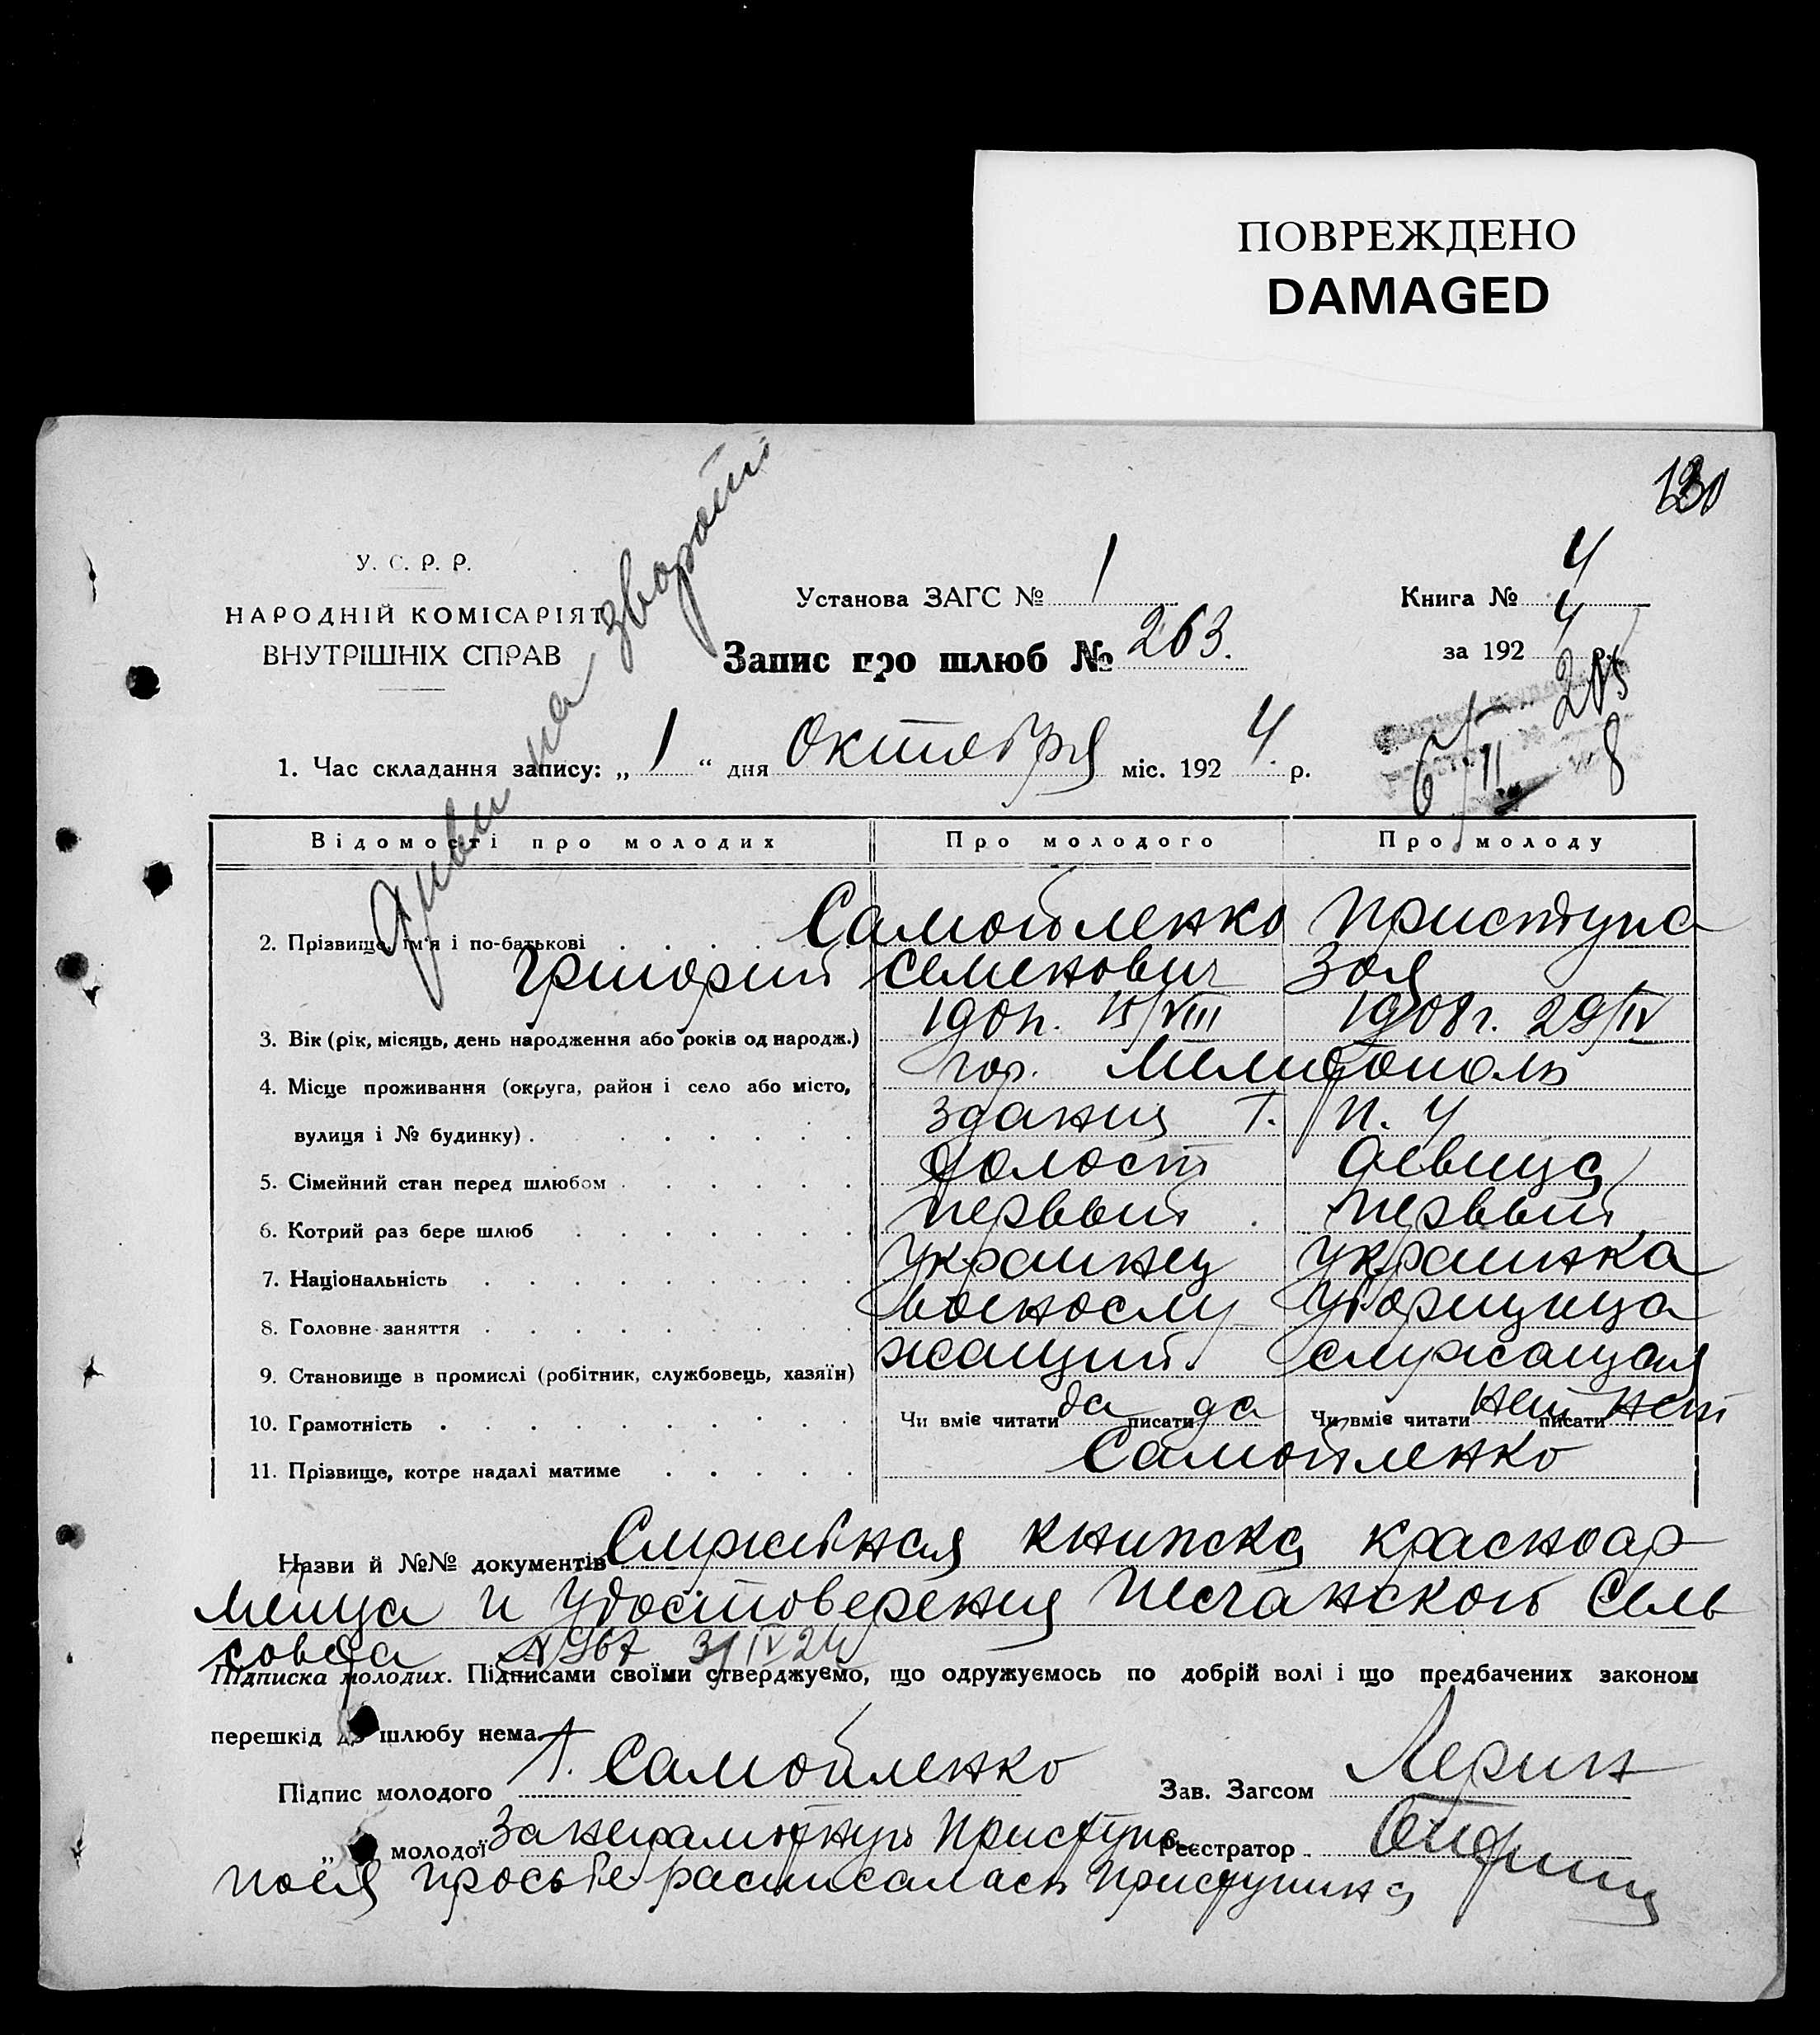 ПОВРЕЖДЕНО
DAMAGED
130
У. С. Р. Р.
НАРОДНІЙ КОМІСАРІЯТ
ВНУТРІШНІХ СПРАВ
Дивы на звороті
Установа ЗАГС № 1
Книга № 4
Запис про шлюб № 263.
за 192 4 р.
1. Час складання запису: „ 1 “ дня Октября міс. 192 4. р.
6/II 8
Відомості про молодих Про молодого Про молоду
2. Прізвище, ім'я і по-батькові Самойленко Приступа
Григорий Семенович Зоя
3. Вік (рік, місяць, день народження або років од народж.) 15/VIII 1908 г. 29/IV
4. Місце проживання (округа, район і село або місто, гор. Мелитополь
вулиця і № будинку) здания Т. П. У
5. Сімейний стан перед шлюбом холост девица
6. Котрий раз бере шлюб первый первый
7. Національність украинец украинка
8. Головне заняття военослу уборщица
9. Становище в промислі (робітник, службовець, хазяїн) жащий служащая
10. Грамотність Чи вміє читати да писати да Чи вміє читати нет писати нет
11. Прізвище, котре надалі матиме Самойленко
Назви й №№ документів Служебная книжка красноар
мейца и Удостоверения Песчанского Сель
совета N 967 3/IV 24
Підписка молодих. Підписами своїми стверджуємо, що одружуємось по добрій волі і що предбачених законом
перешкід до шлюбу нема.
Підпис молодого Г. Самойленко Зав. Загсом
„ молодої За неграмотную Приступа Реєстратор
по ея просьбе расписалась